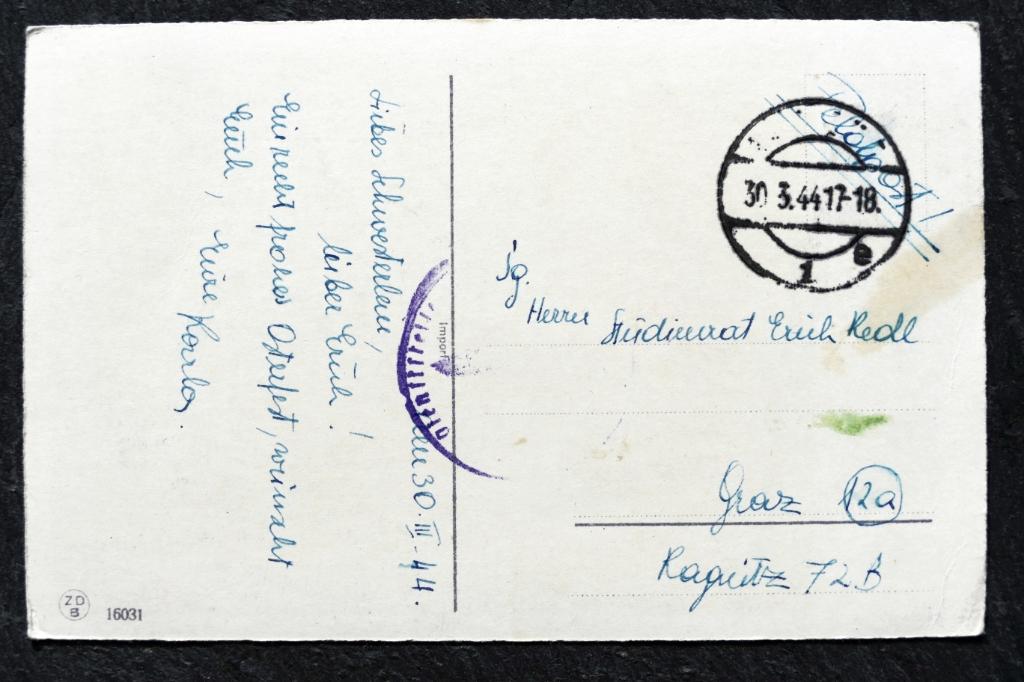 den 30. III. 44.
Liebes Schwesterlein,
lieber Erich!
Ein recht frohes Osterfest, wünscht
Euch,
Eure
Feldpost!
30 3.44 17-18.
1 e
Herrn Studienrat Erich Redl
Graz 12a
Ragnitz 72 B
Import
ZD
B
16031